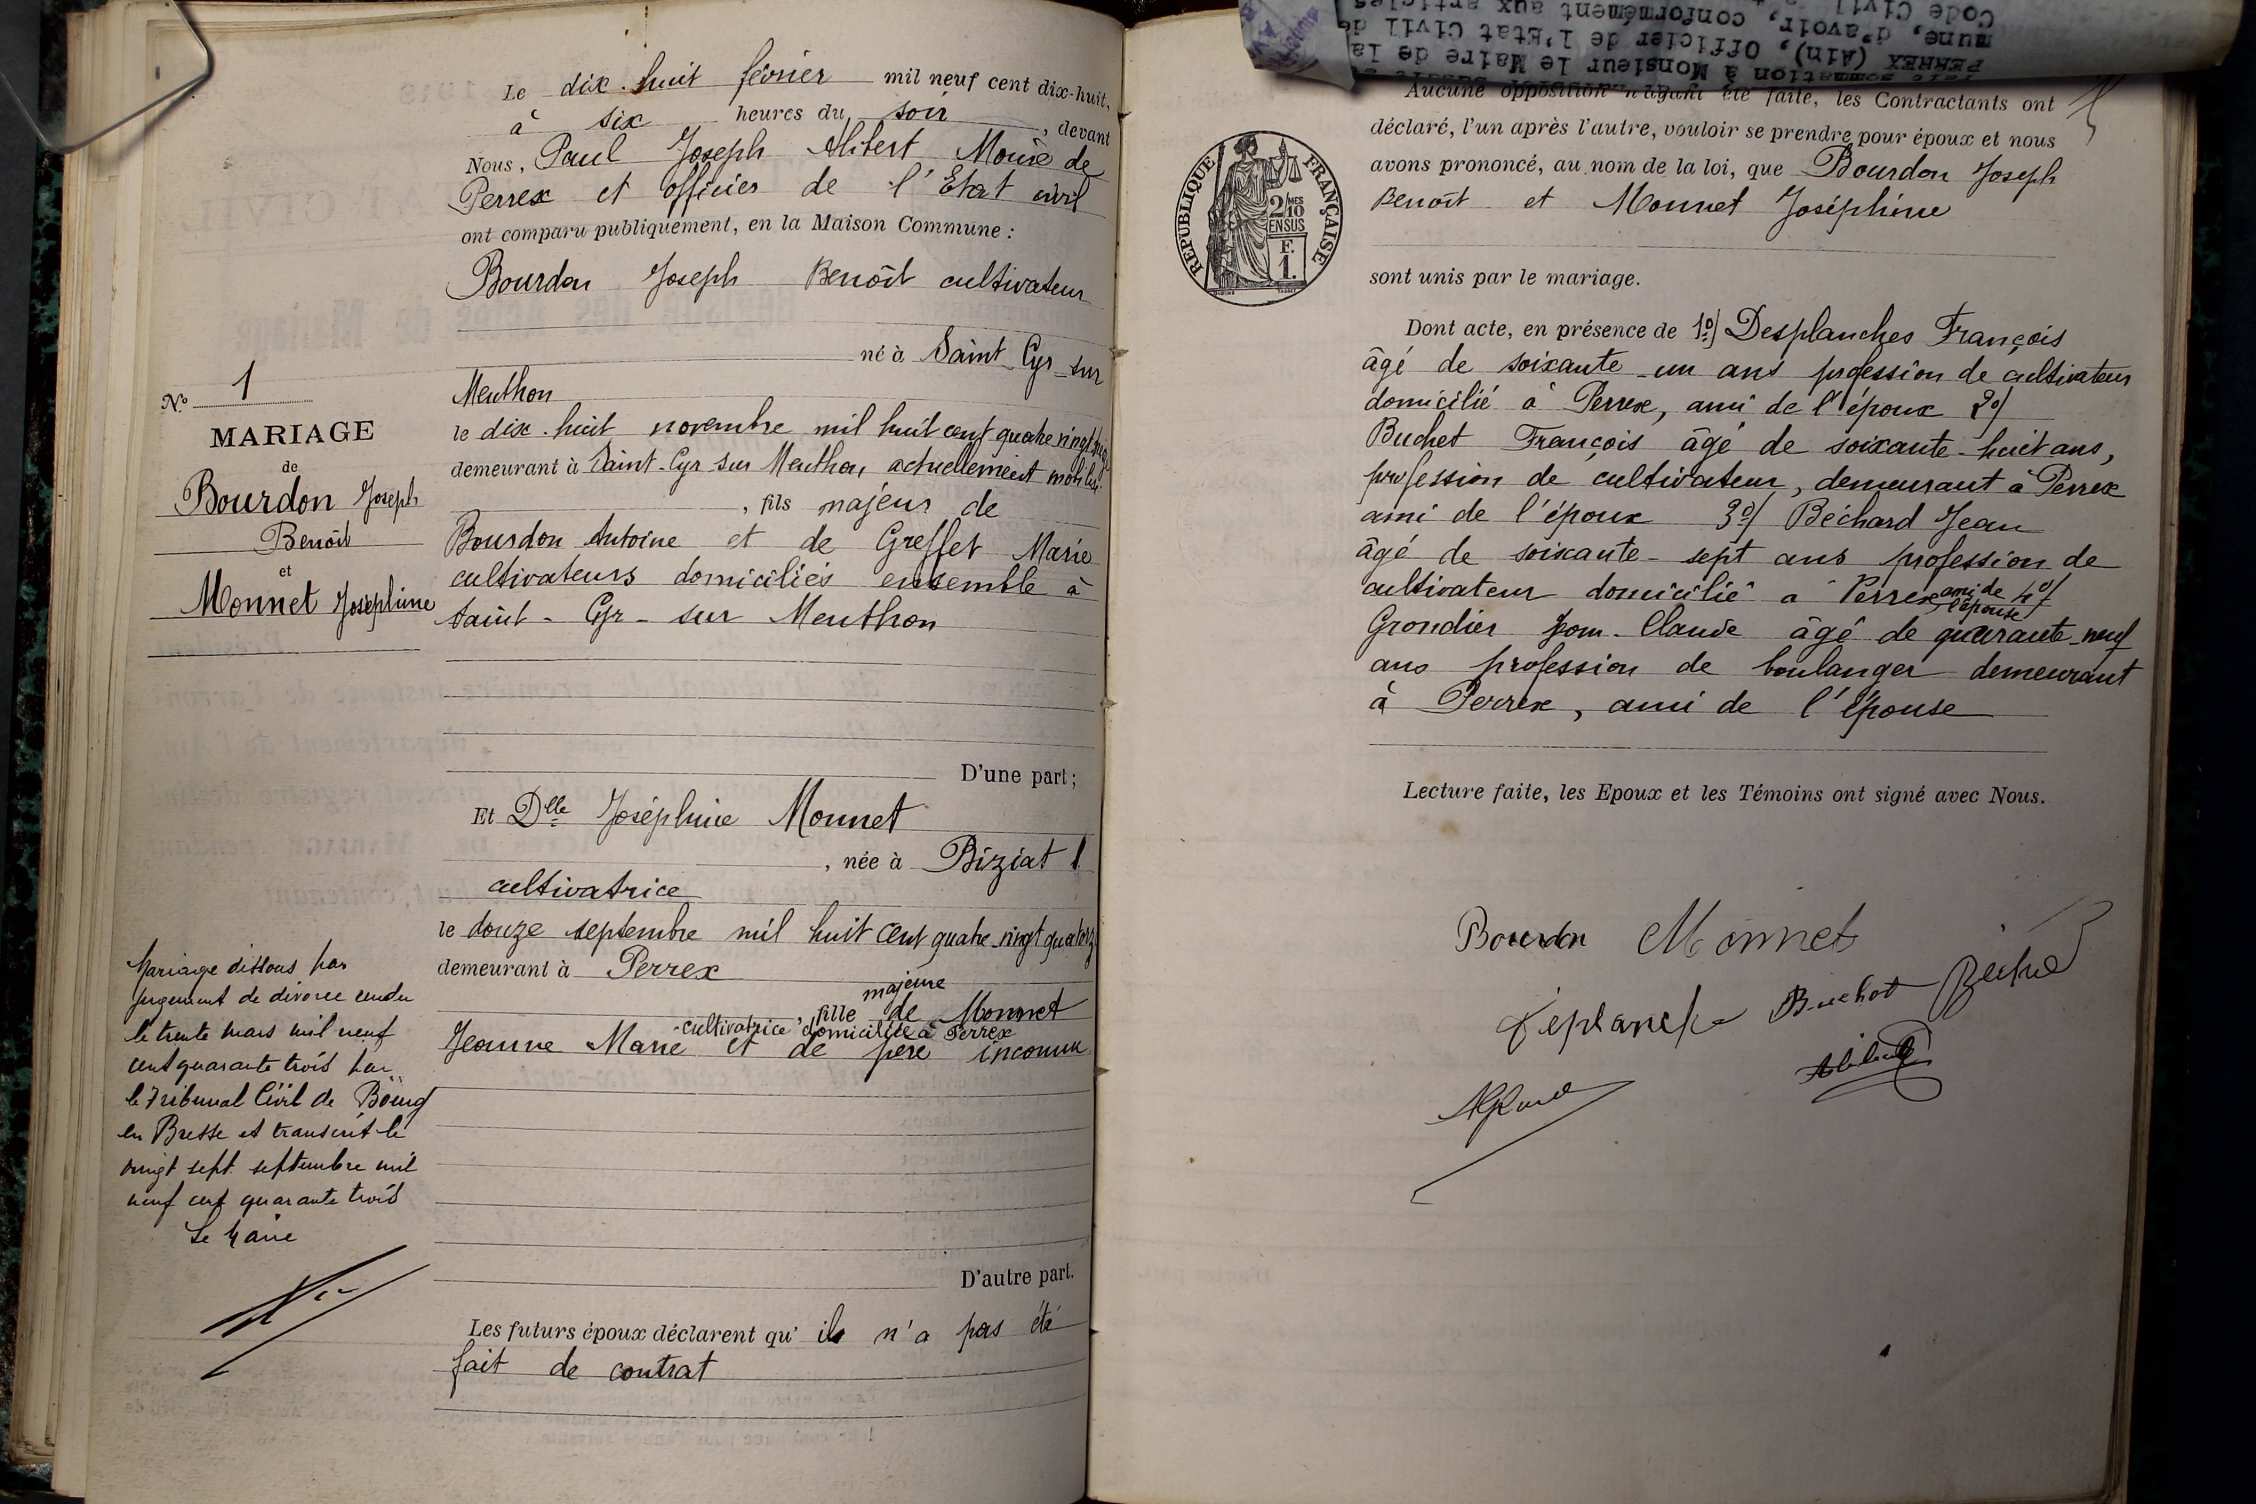 Le dix-huit février mil neuf cent dix-huit,
à six heures du soir, devant
Nous, Paul Joseph Alibert Maire de
Perrex et officier de l'Etat civil
ont comparu publiquement, en la Maison Commune :
Bourdon Joseph Benoît cultivateur
né à Saint-Cyr-sur
Menthon
le dix-huit novembre mil huit cent quatre vingt
demeurant à Saint-Cyr sur Menthon, actuellement mobilisé
, fils majeur de
Bourdon Antoine et de Greffet Marie
cultivateurs domiciliés ensemble à
Saint-Cyr-sur Menthon
D'une part ;
Et Dlle Joséphine Monnet
, née à Biziat
cultivatrice
le douze septembre mil huit cent quatre-vingt quatorze
demeurant à Perrex
majeure
, fille de Monnet
cultivatrice domiciliée à Perrex
Jeanne Marie et de père inconnu
D'autre part.
Les futurs époux déclarent qu'il n'a pas été
fait de contrat
N° 1
MARIAGE
de
Bourdon Joseph
Benoît
et
Monnet Joséphine
Mariage dissous par
jugement de divorce rendu
le trente mars mil neuf
cent quarante trois par
le Tribunal Civil de Bourg
en Bresse et transcrit le
vingt sept septembre mil
neuf cent quarante trois
Le Maire
PERREX (Ain), Officier de l'Etat Civil de
mune, d'avoir, conformément aux articles
Code Civil
sommation à Monsieur le Maire de la
Aucune opposition n'ayant été faite, les Contractants ont
déclaré, l'un après l'autre, vouloir se prendre pour époux et nous
avons prononcé, au nom de la loi, que Bourdon Joseph
Benoît et Monnet Joséphine
sont unis par le mariage.
REPUBLIQUE FRANÇAISE
2/10 MES
EN SUS
F.
1.
Dont acte, en présence de 1°/ Desplanches François
âgé de soixante-un ans profession de cultivateur
domicilié à Perrex, ami de l'époux 2°/
Buchet François âgé de soixante-huit ans,
profession de cultivateur, demeurant à Perrex
ami de l'époux 3°/ Béchard Jean
âgé de soixante-sept ans profession de
cultivateur domicilié à Perrex ami de l'épouse 4°/
Grondier Claude âgé de quarante-neuf
ans profession de boulanger demeurant
à Perrex, ami de l'épouse
Lecture faite, les Epoux et les Témoins ont signé avec Nous.
Bourdon Monnet
Buchet